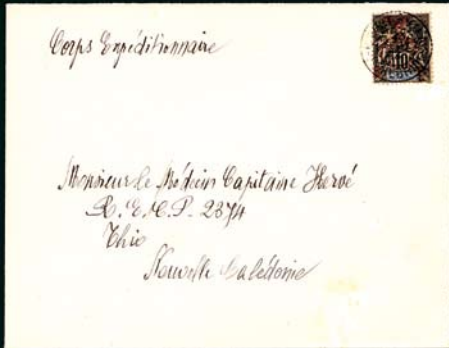 Corps Expéditionnaire
10
Monsieur le Médecin Capitaine Hervé
2374
Thio
Nouvelle Calédonie